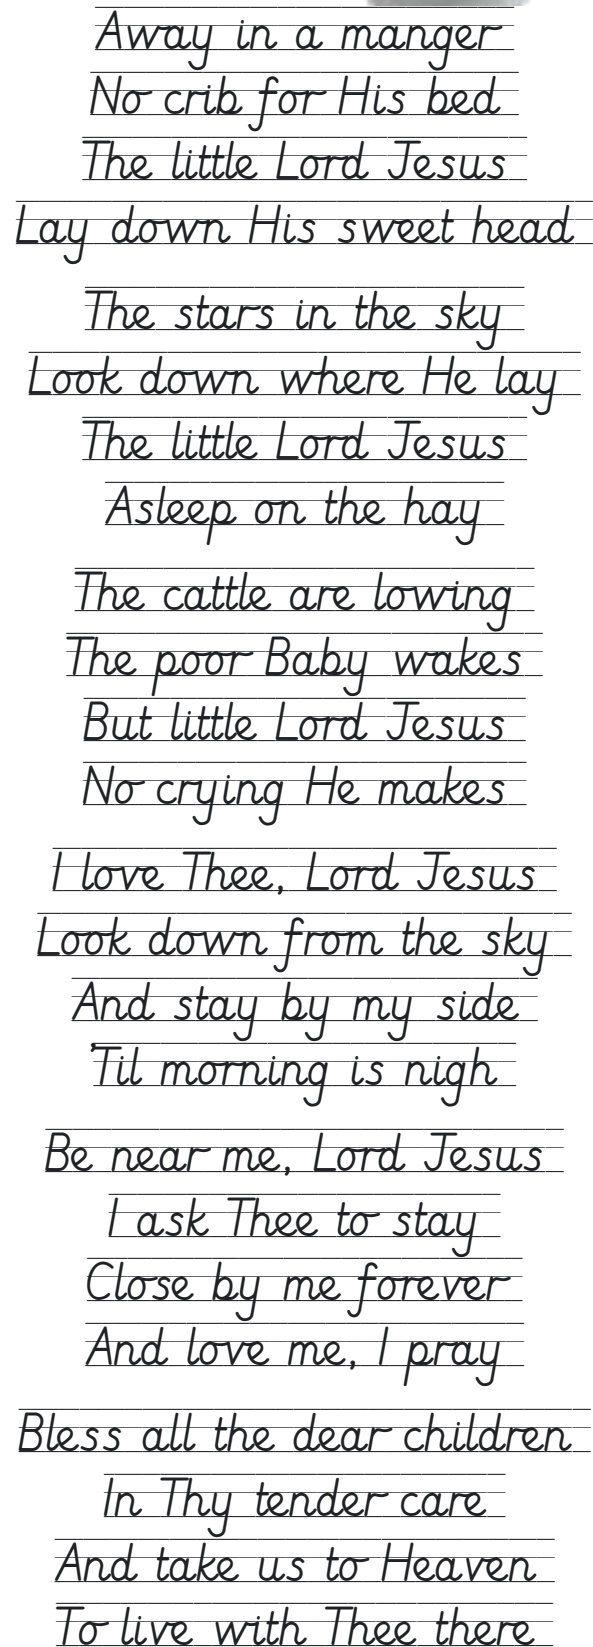 Away in a manger
No crib for His bed
The little Lord Jesus
Lay down His sweet head
The stars in the sky
Look down where He lay
The little Lord Jesus
Asleep on the hay
The cattle are lowing
The poor Baby wakes
But little Lord Jesus
No crying He makes
I love Thee, Lord Jesus
Look down from the sky
And stay by my side
'Til morning is nigh
Be near me, Lord Jesus
I ask Thee to stay
Close by me forever
And love me, I pray
Bless all the dear children
In Thy tender care
And take us to Heaven
To live with Thee there